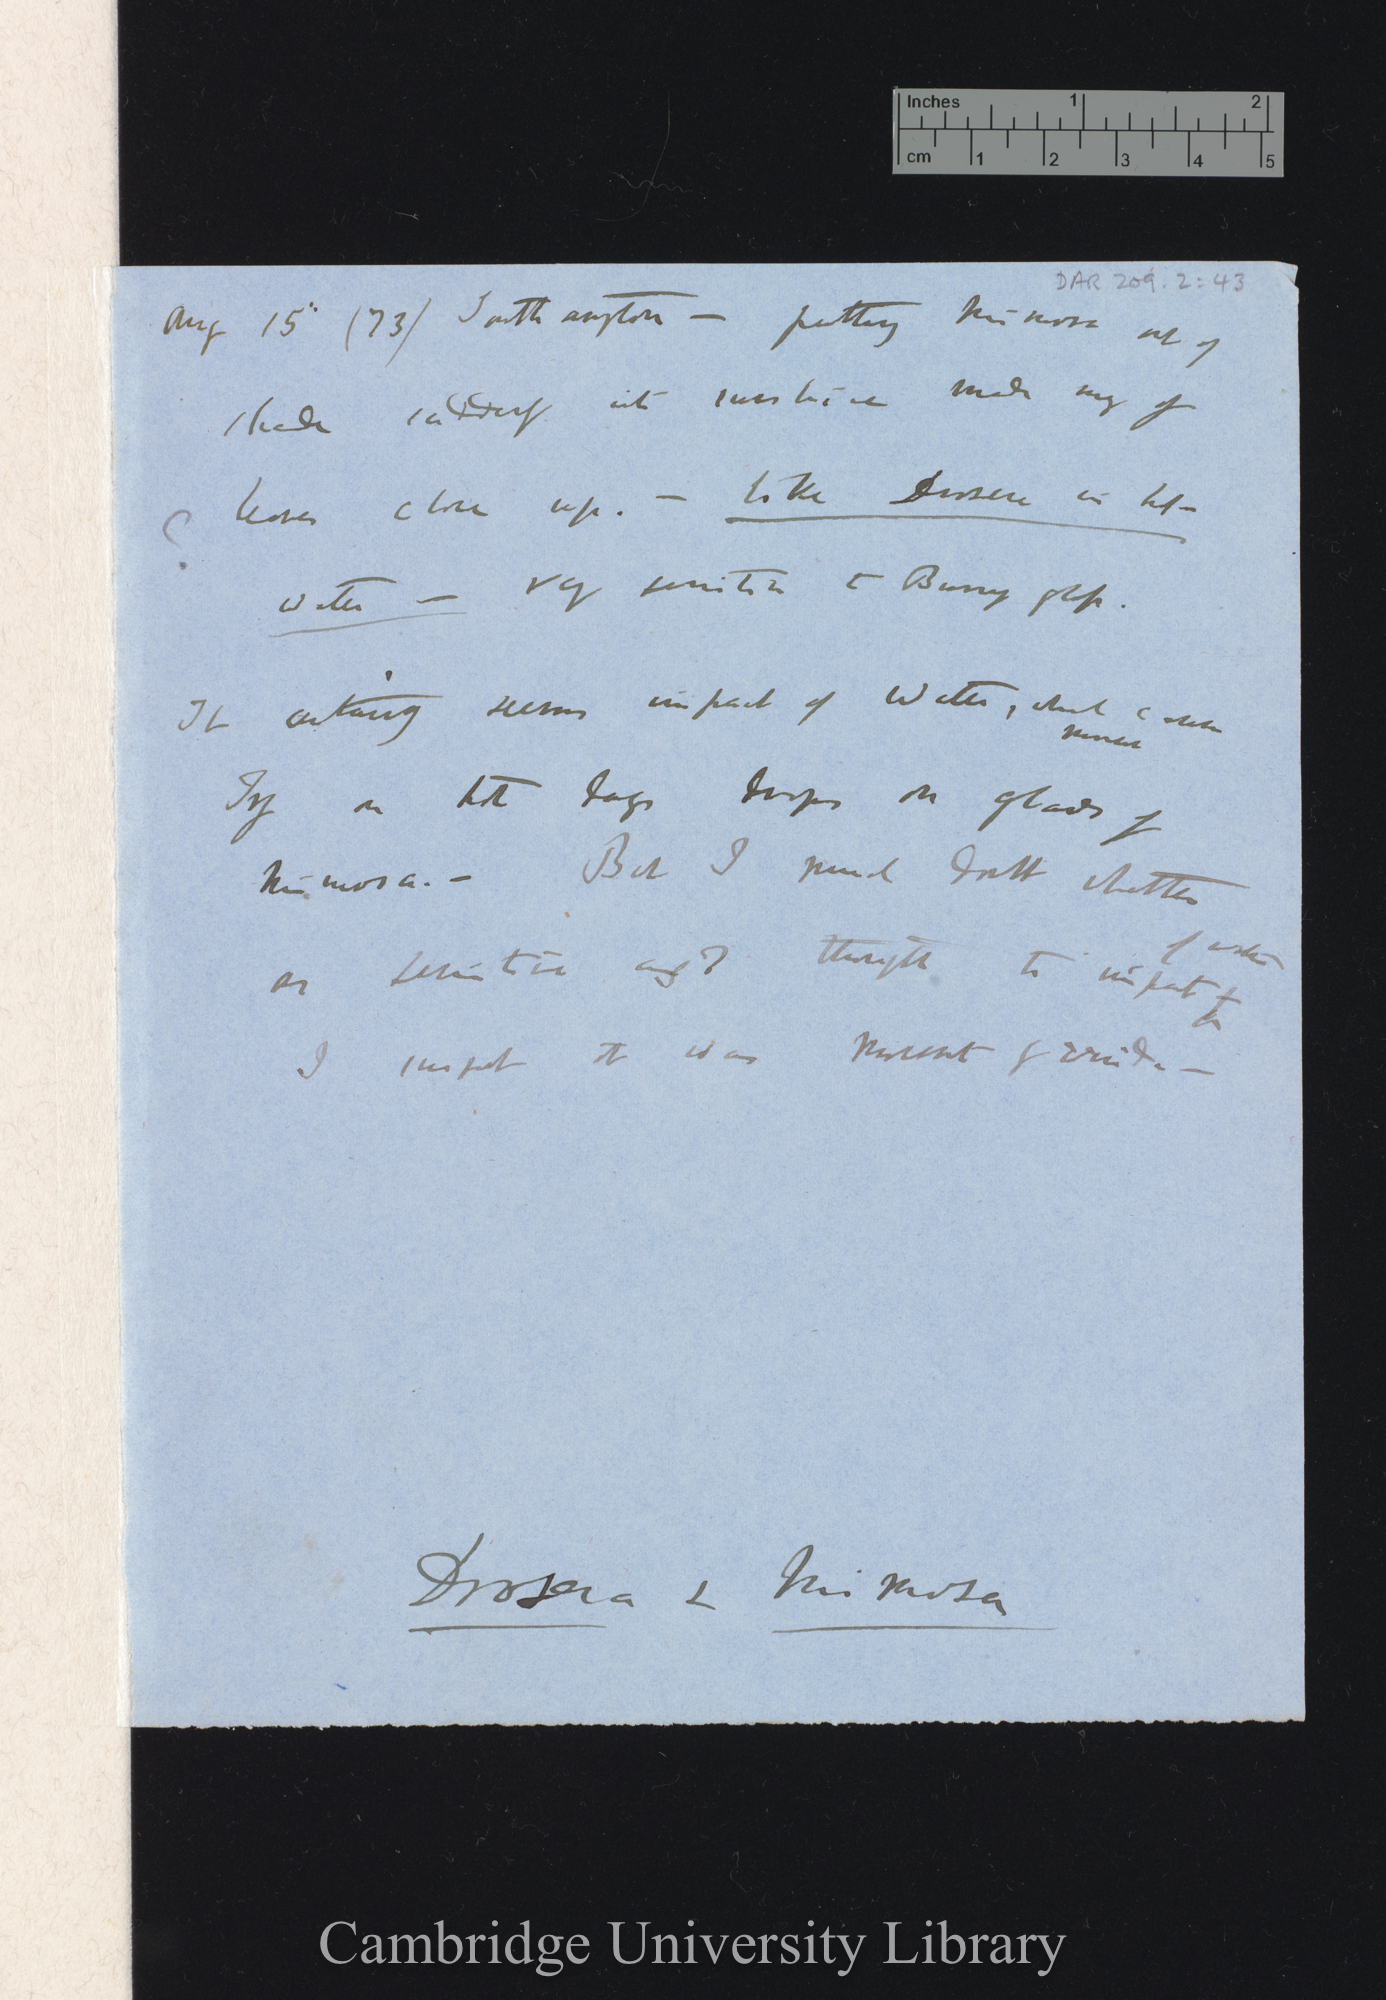 Inches 1 2
cm 1 2 3 4 5
DAR 209.2:43
Aug 15 (73) Southampton — putting Mimosa out of
shade suddenly into sunshine made many of
? leaves close up. — Like Drosera in hot-
water — very sensitive to Burning glass.
It certainly seems impact of Water, which
Try on hot days drops on glands of
Mimosa. — But I much doubt whether
as sensitive as I thought to impact of water
I suspect it was movement of
Drosera & Mimosa
Cambridge University Library